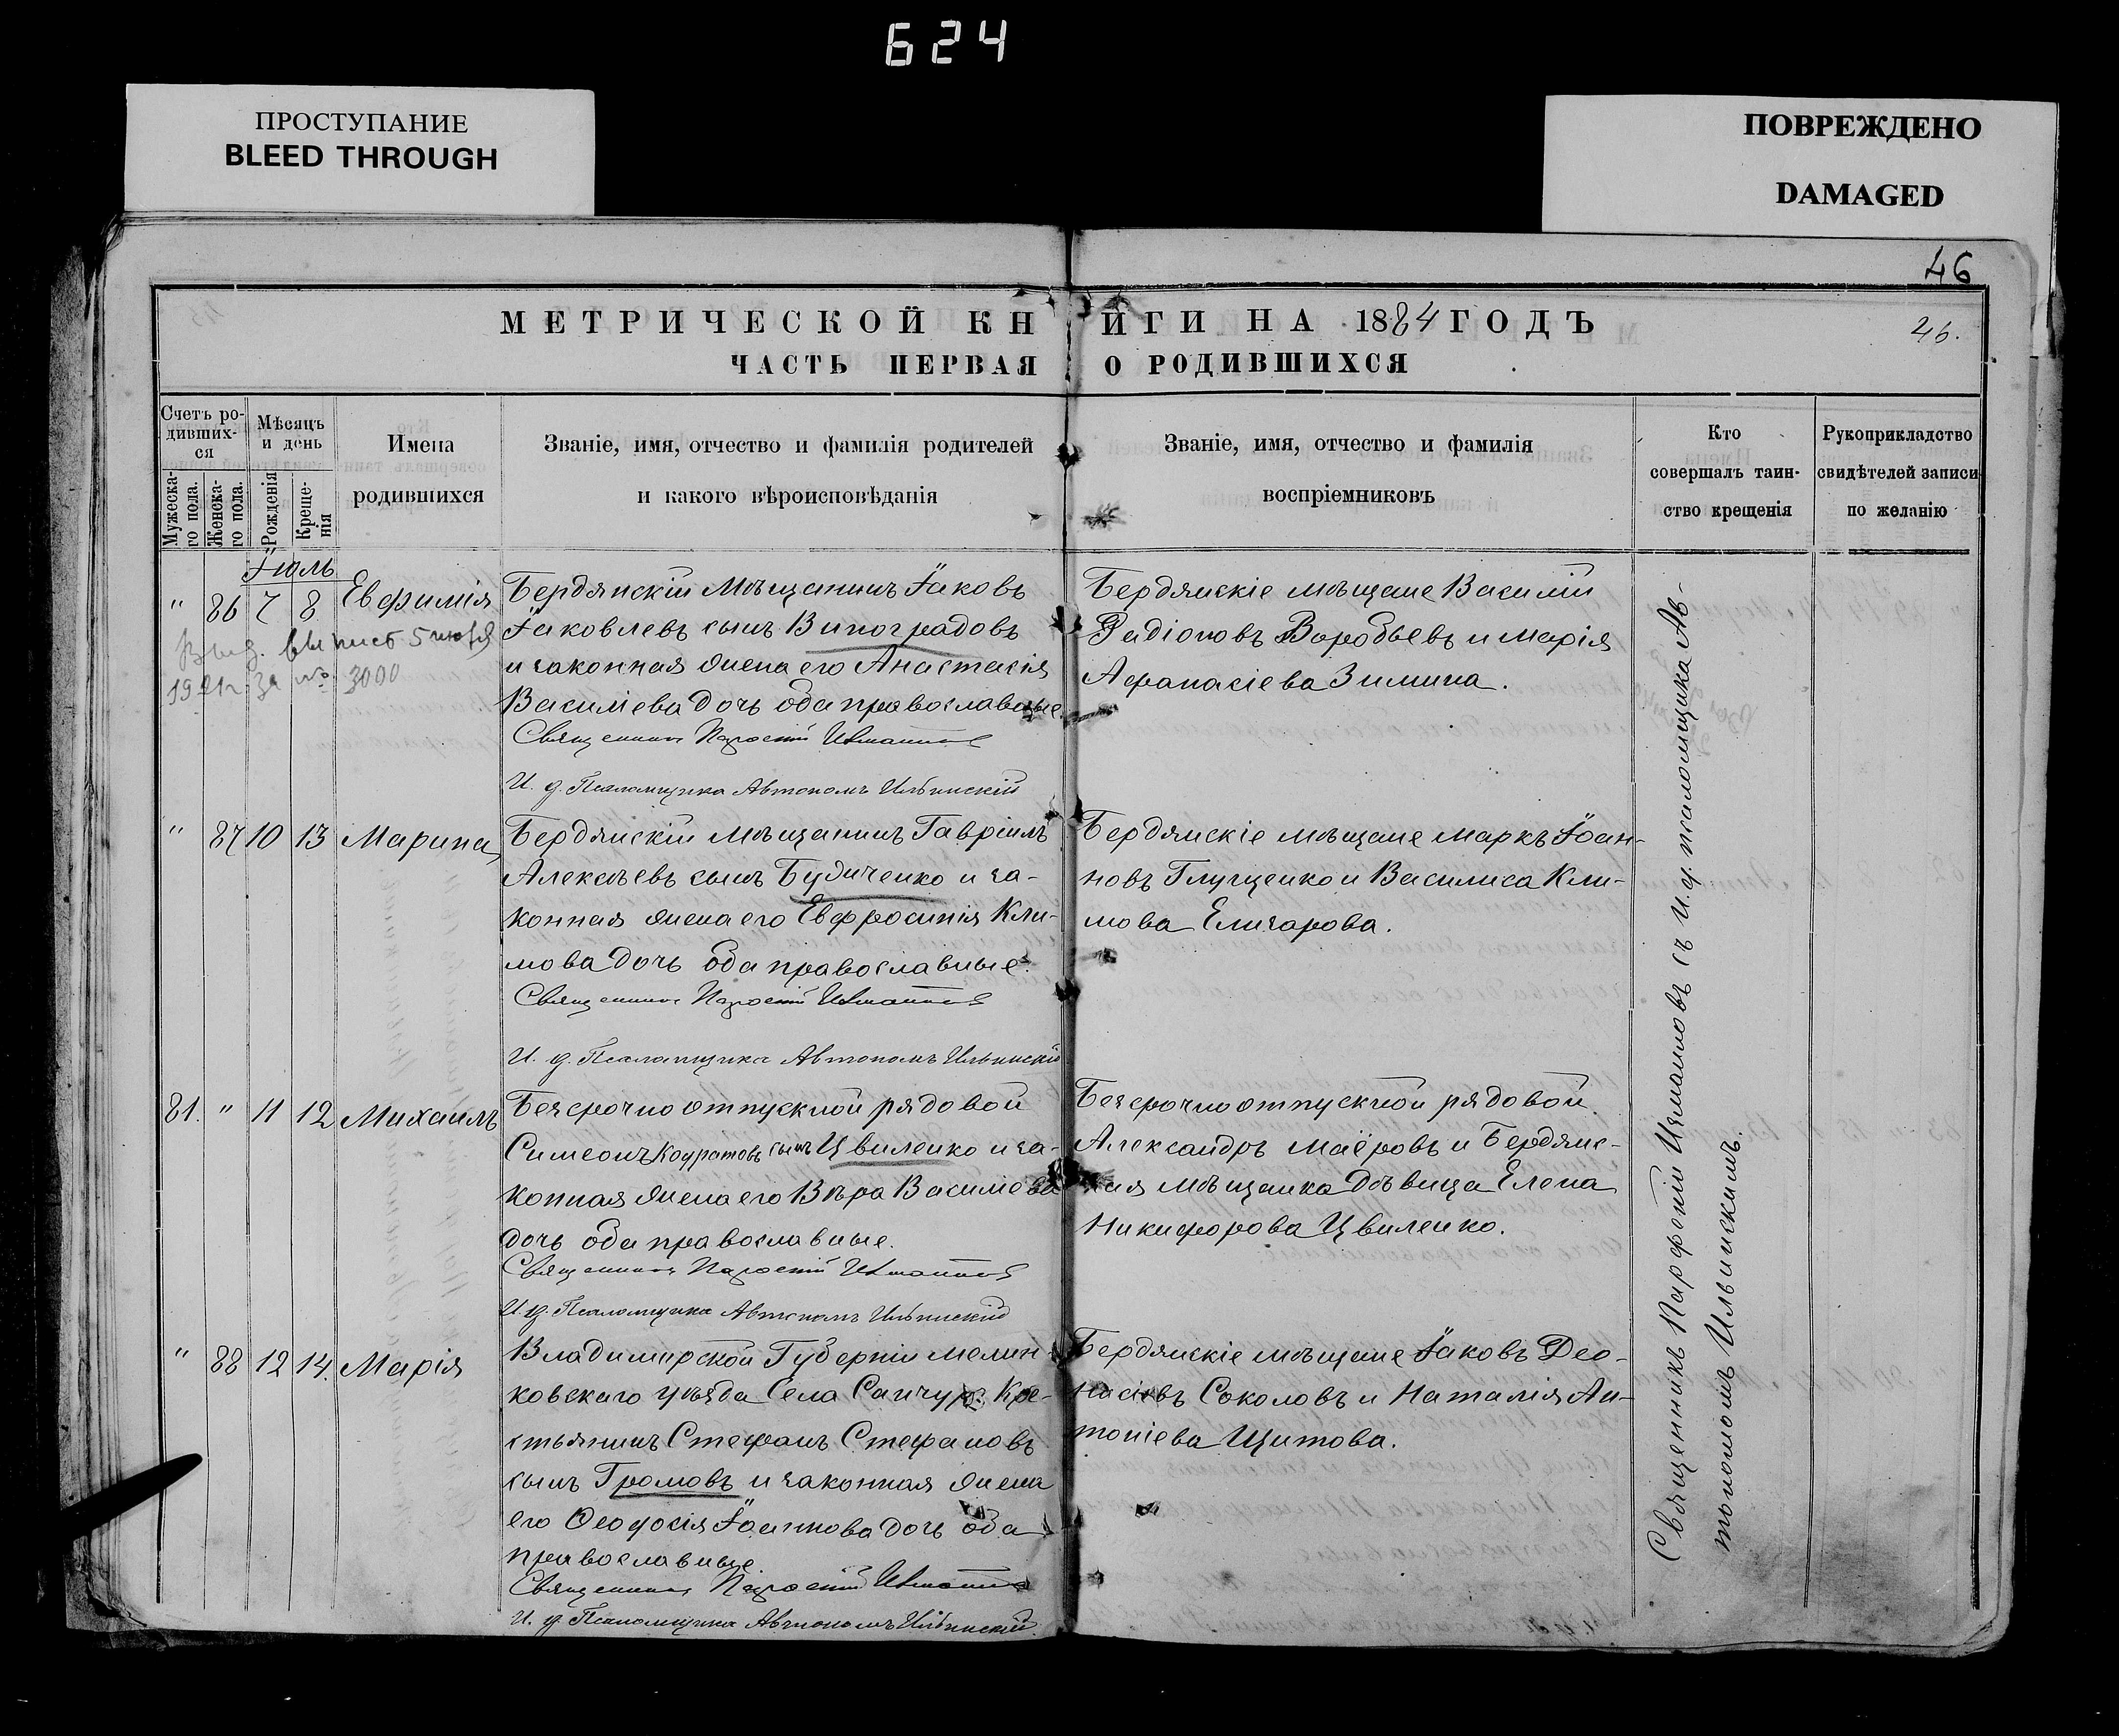 624
ПРОСТУПАНИЕ
BLEED THROUGH
ПОВРЕЖДЕНО
DAMAGED
46
МЕТРИЧЕСКОЙ КНИГИ НА 1884 ГОДЪ
46.
ЧАСТЬ ПЕРВАЯ О РОДИВШИХСЯ
Счетъ ро-
дивших-
ся
Мужеска-
го пола.
Женска-
го пола.
Мѣсяцъ
и день
Рожденія
Креще-
нія
Имена
родившихся
Званіе, имя, отчество и фамилія родителей
и какого вѣроисповѣданія
Званіе, имя, отчество и фамилія
воспріемниковъ
Кто
совершалъ таин-
ство крещенія
Рукоприкладство
свидѣтелей записи
по желанію
Іюль
" 86 7 8 Евфимія
1921 г. за № 3000
Бердянскій мѣщанинъ Іаковъ
Іаковлевъ сынъ Виноградовъ
и законная жена его Анастасія
Василіева дочь оба православные
Священникъ Парфеній Измаиловъ
И. д. Псаломщика Автономъ Ильинскій
Бердянскіе мѣщане Василій
Радіоновъ Воробьевъ и Марія
Афанасіева Зимина.
" 87 10 13 Марина
Бердянскій мѣщанинъ Гавріилъ
Алексѣевъ сынъ Будиченко и за-
конная жена его Евфросинія Кли-
мова дочь оба православные.
Священникъ Парфеній Измаиловъ
И. д. Псаломщика Автономъ Ильинскій
Бердянскіе мѣщане Маркъ Іоан-
новъ Глущенко и Василиса Кли-
мова Елизарова.
81. " 11 12 Михаилъ
Безсрочноотпускной рядовой
Симеонъ Кодратовъ сынъ Цвиленко и за-
конная жена его Вѣра Василіева
дочь оба православные.
Священникъ Парфеній Измаиловъ
И. д. Псаломщика Автономъ Ильинскій
Безсрочноотпускной рядовой
Александръ Маёровъ и Бердянс-
кая мѣщанка дѣвица Елена
Никифорова Цвиленко.
" 88 12 14. Марія
Владимирской Губерніи Мелин-
ковскаго уѣзда Села Санчур. Кре-
стьянинъ Стефанъ Стефановъ
сынъ Громовъ и законная жена
его Ѳеодосія Іоаннова дочь оба
православные
Священникъ Парфеній Измаиловъ
И. д. Псаломщика Автономъ Ильинскій.
Бердянскіе мѣщане Іаковъ Део-
Соколовъ и Наталія Ан-
тоніева Щитова.
Священникъ Парфеній Измаиловъ съ и. д. псаломщика Ав-
тономомъ Ильинскимъ.